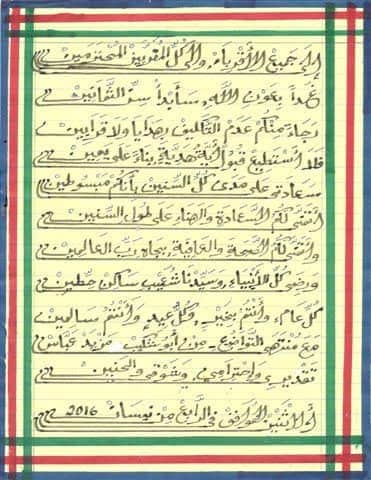 إلى جميع الأقرباء وإلى كل المقربين المحترمين
غداً بعون الله سأبدأ سن الثمانين
رجاء منكم عدم التكليف وهدايا ولا قرابين
فلا أستطيع قبول أية هدية بناء على يمين
سعادتي على مدى كل السنين بأنكم مبسوطين
أتمنى لكم السعادة والهناء على طول السنين
وأتمنى لكم الصحة والعافية بجاه رب العالمين
ورضى كل الأنبياء وسيدنا شعيب ساكن حطين
كل عام وأنتم بخير وكل عيد وأنتم سالمين
مع منتهى التواضع من أبو شكيب مزيد عباس
تقديري واحترامي وشوقي والحنين
الإثنين الموافق في الرابع من نيسان 2016